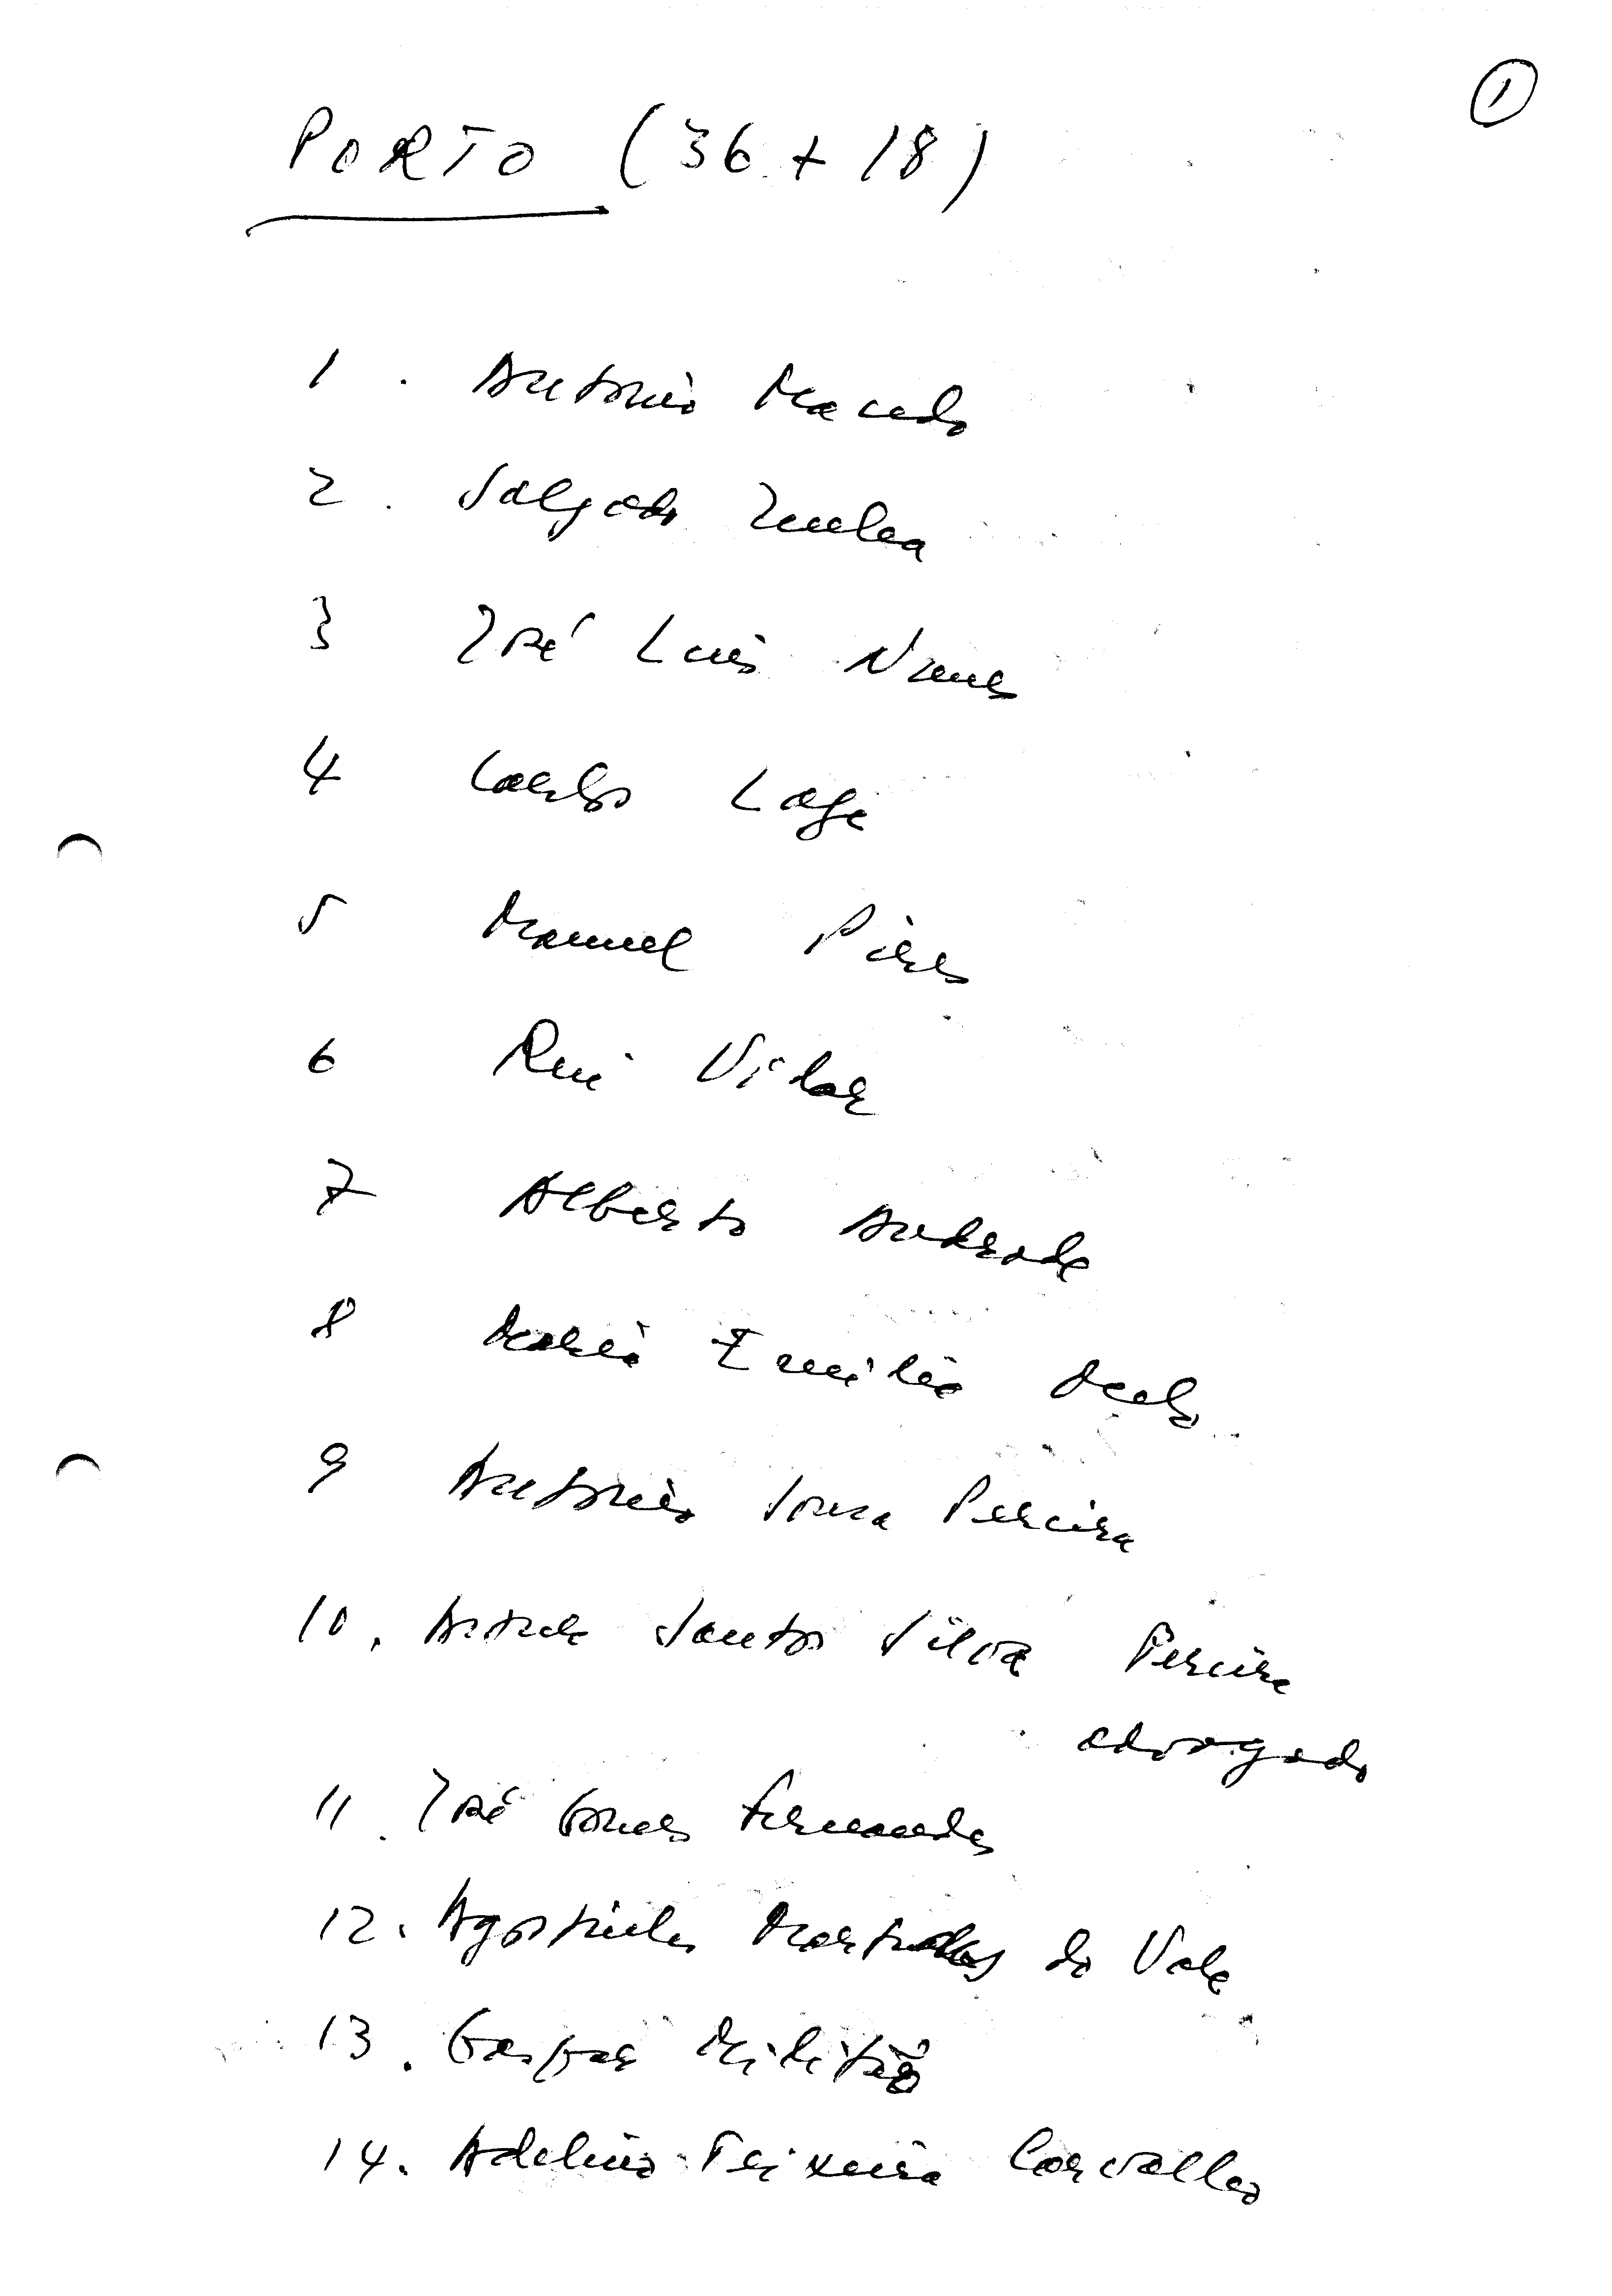 1
PORTO (36 + 18)
1. António Macedo
2. Salgado Zenha
3 José Luís Nunes
4 Carlos Lage
5 Manuel Pires
6 Rui Vilar
7 Alberto Andrade
8 Maria Emília Melo
9 António Sousa Pereira
10. Santos Silva Pereira
advogado
11. José Gomes Fernandes
12. Agostinho do Vale
13. Gaspar Militão
14. Adelino Teixeira Carvalho